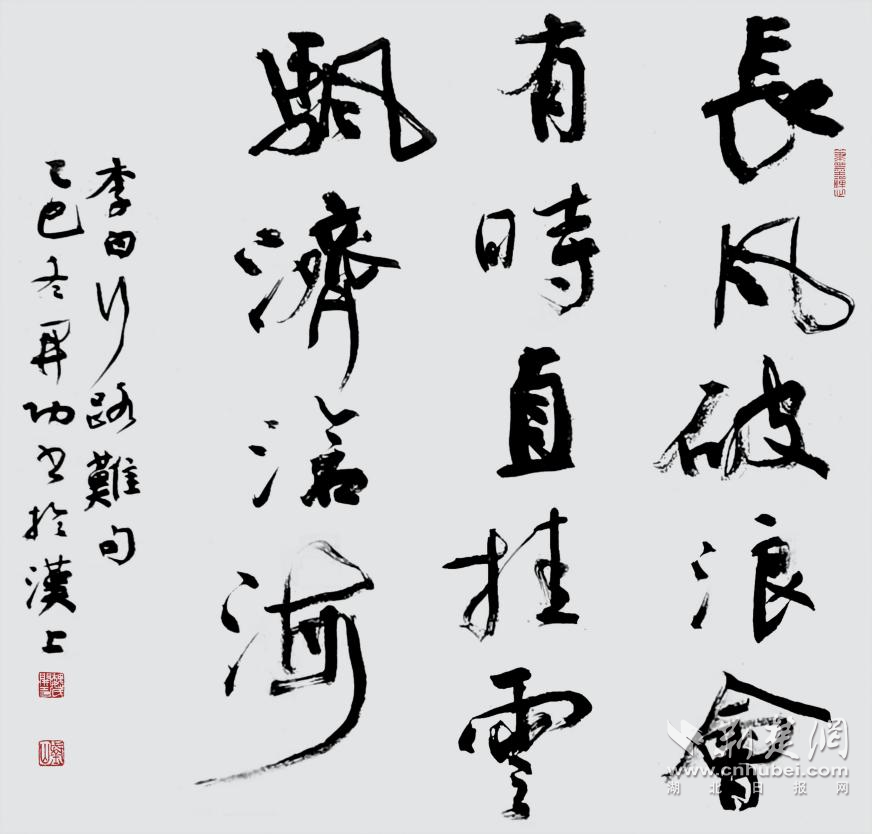 長風破浪會
有時直挂雲
颿濟滄海
李白行路難句
乙巳冬開功書於漢上
荆楚網
www.cnhubei.com
湖北日报网